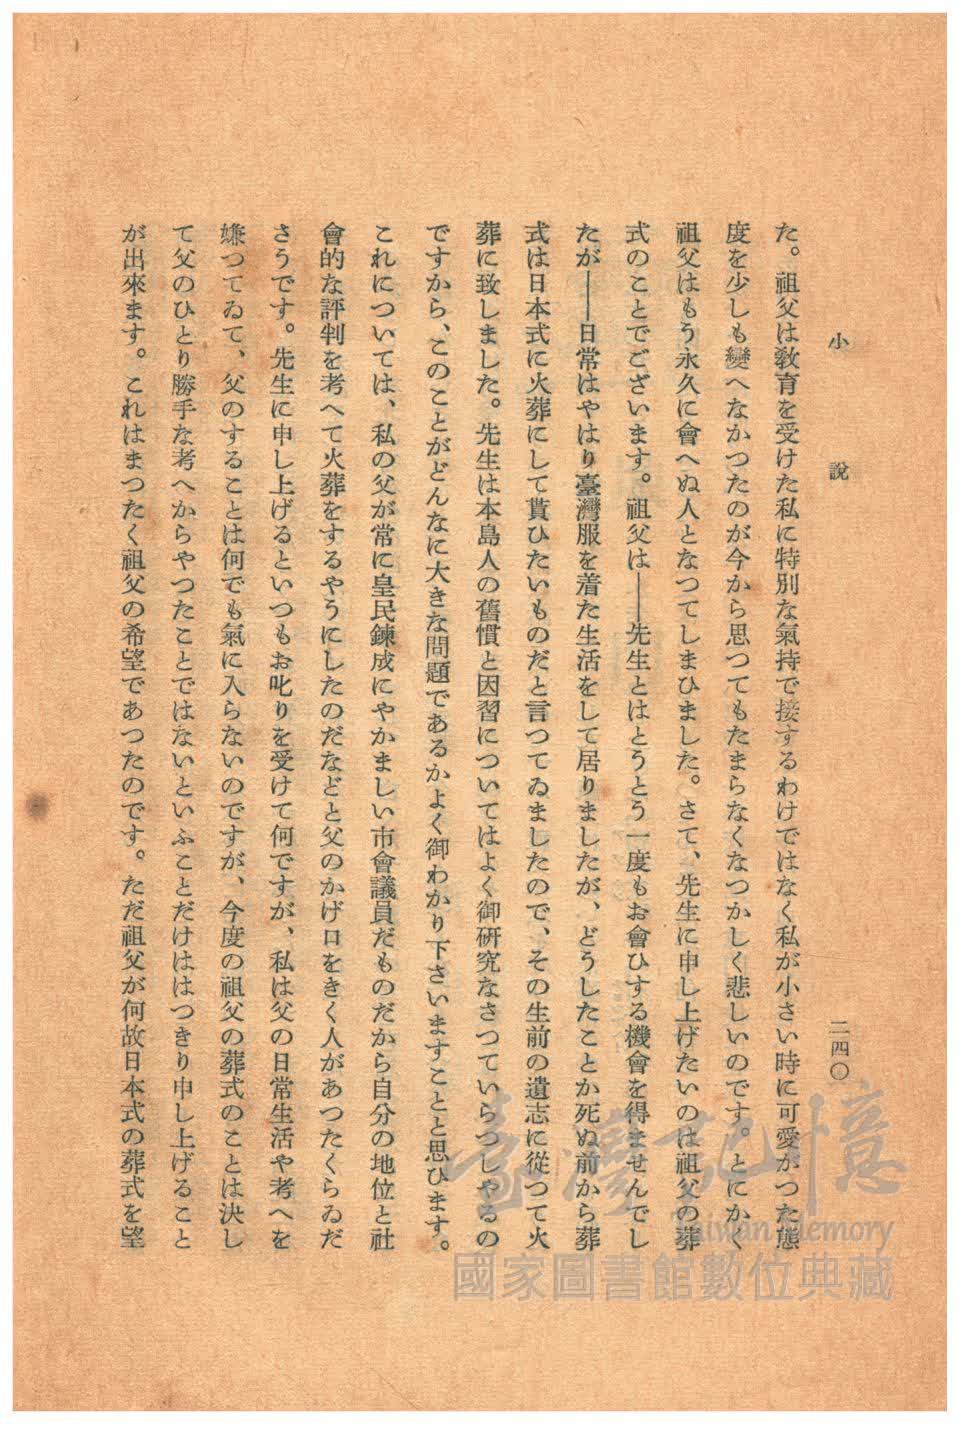 小說
二四〇
た。祖父は敎育を受けた私に特別な氣持で接するわけではなく私が小さい時に可愛がつた態
度を少しも變へなかつたのが今から思つてもたまらなくなつかしく悲しいのです。とにかく
祖父はもう永久に會へぬ人となつてしまひました。さて、先生に申し上げたいのは祖父の葬
式のことでございます。祖父は――先生とはとうとう一度もお會ひする機會を得ませんでし
たが――日常はやはり臺灣服を着た生活をして居りましたが、どうしたことか死ぬ前から葬
式は日本式に火葬にして貰ひたいものだと言つてゐましたので、その生前の遺志に從つて火
葬に致しました。先生は本島人の舊慣と因習についてはよく御硏究なさつていらつしやるの
ですから、このことがどんなに大きな問題であるかよく御わかり下さいますことと思ひます。
これについては、私の父が常に皇民鍊成にやかましい市會議員だものだから自分の地位と社
會的な評判を考へて火葬をするやうにしたのだなどと父のかげ口をきく人があつたくらゐだ
さうです。先生に申し上げるといつもお叱りを受けて何ですが、私は父の日常生活や考へを
嫌つてゐて、父のすることは何でも氣に入らないのですが、今度の祖父の葬式のことは決し
て父のひとり勝手な考へからやつたことではないといふことだけははつきり申し上げること
が出來ます。これはまつたく祖父の希望であつたのです。ただ祖父が何故日本式の葬式を望
臺灣記憶
Taiwan Memory
國家圖書館數位典藏